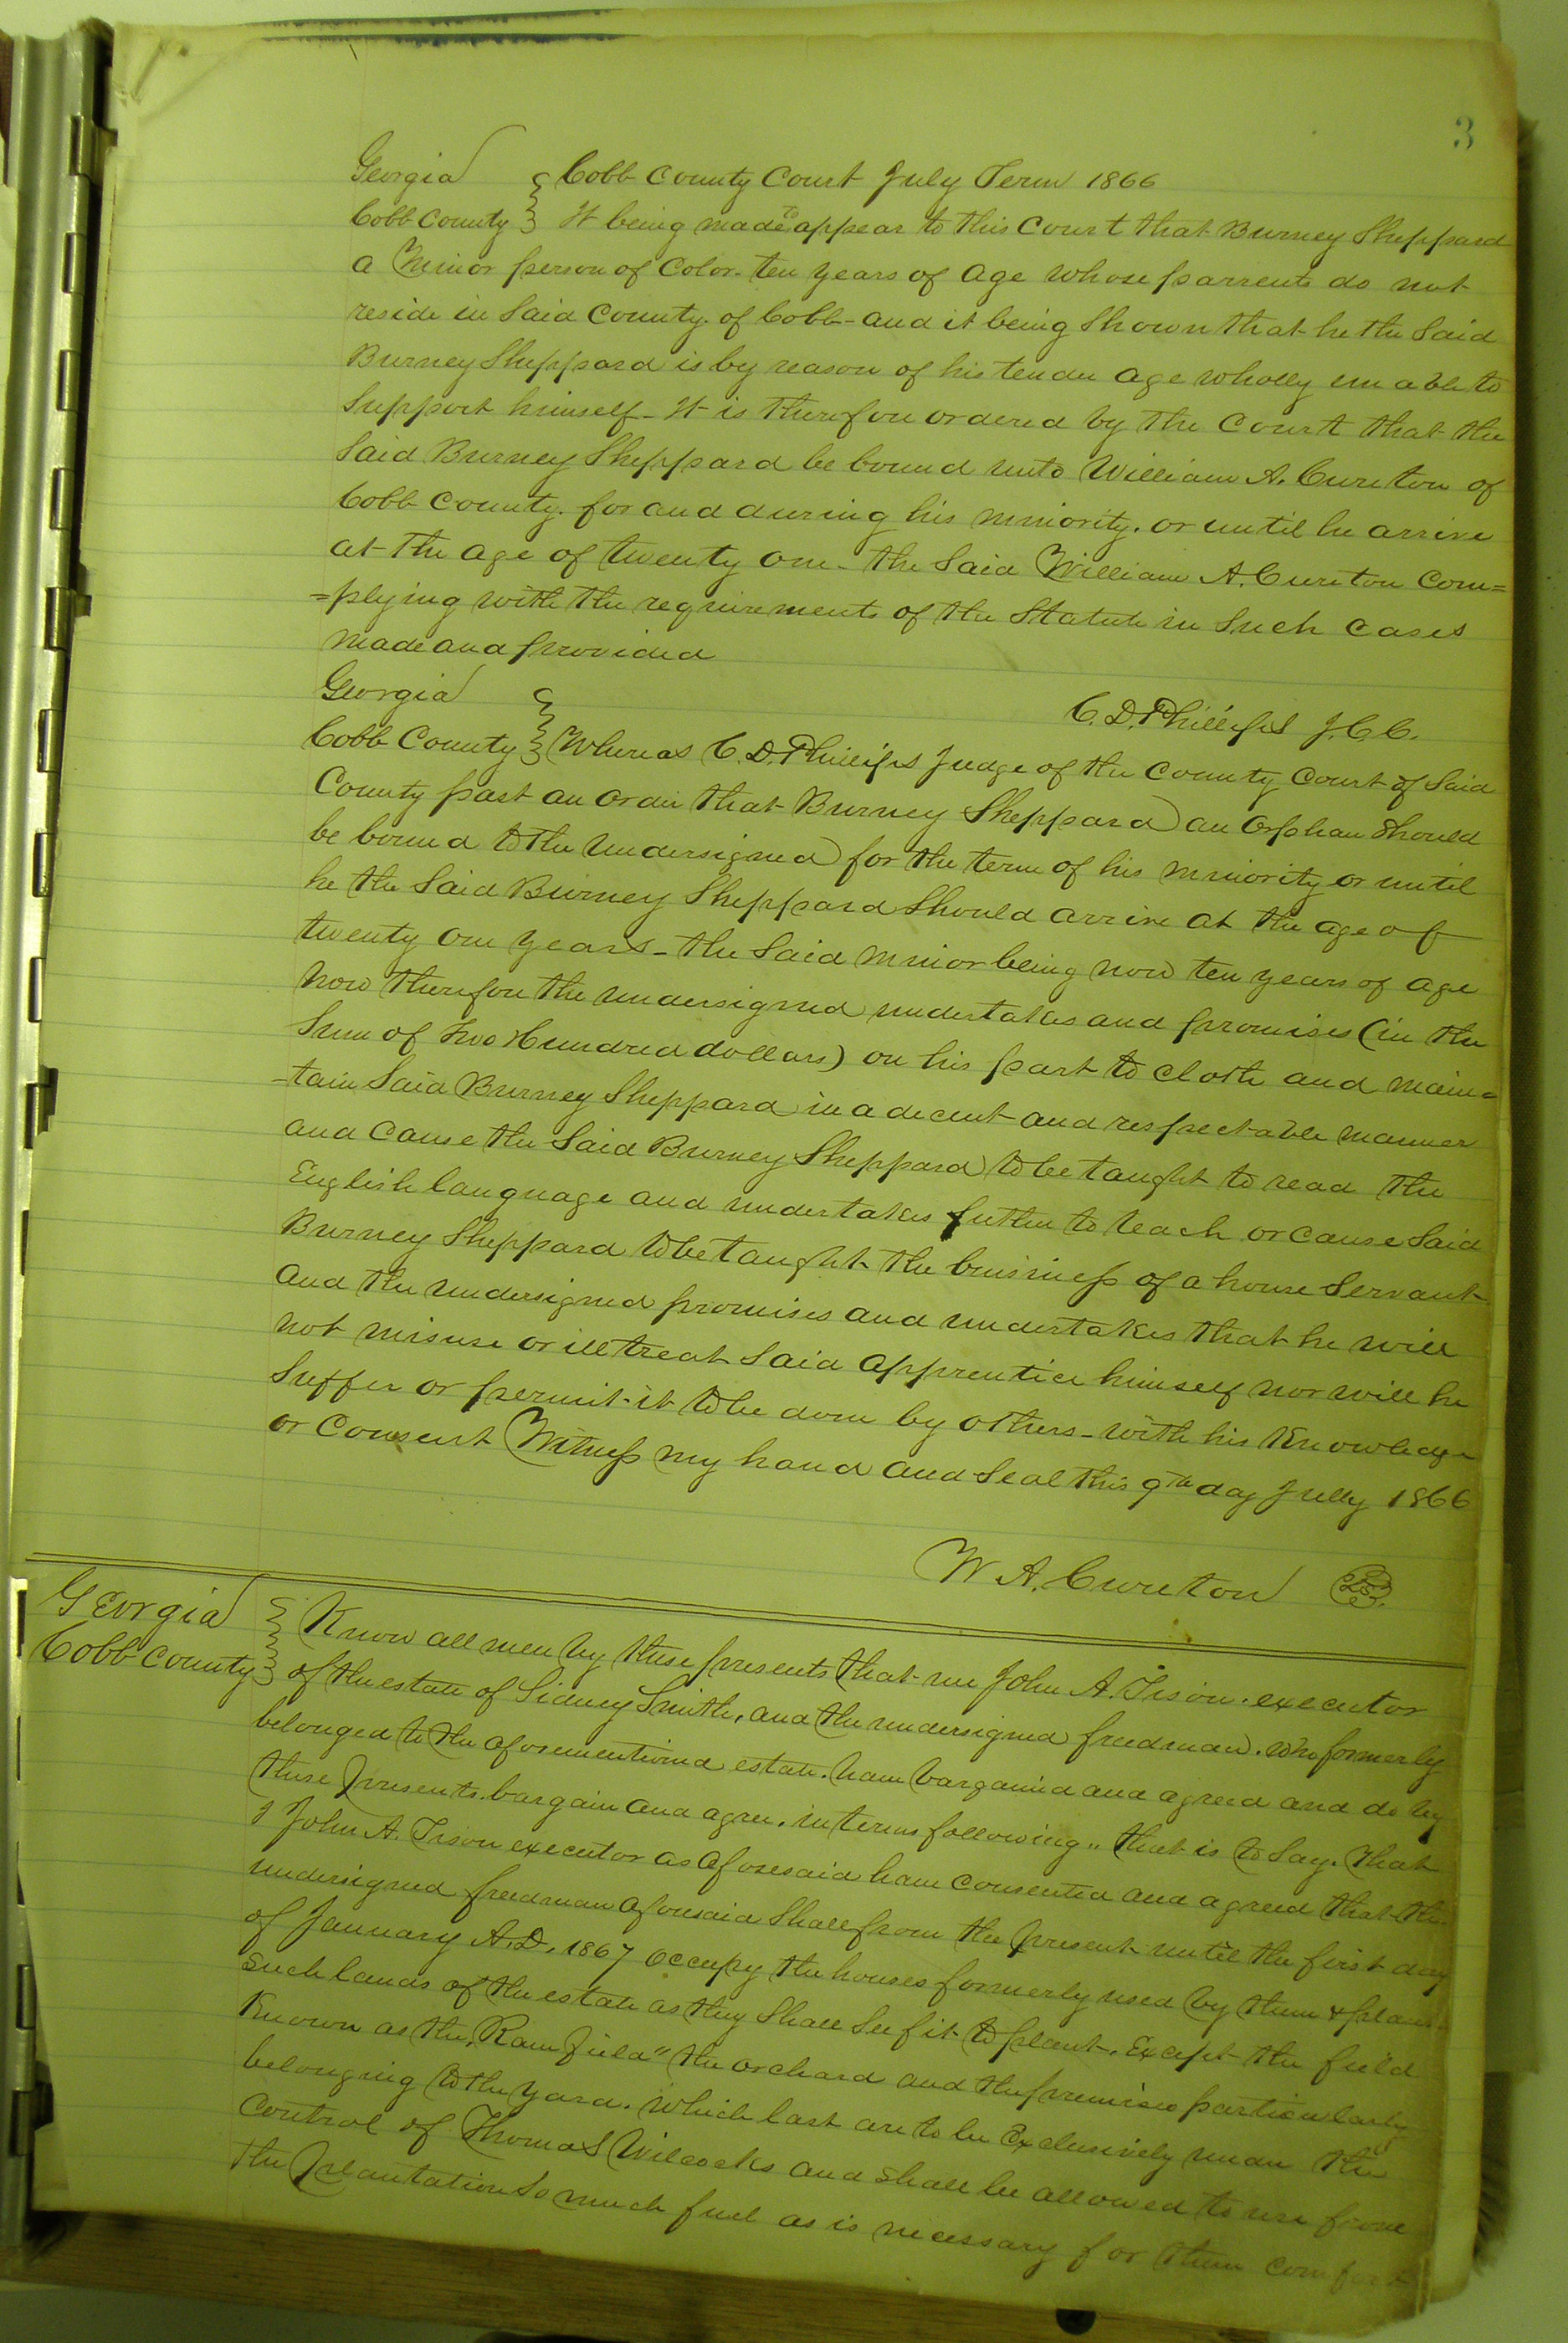 3
Georgia } Cobb County Court July Term 1866
Cobb County } It being made to appear to this Court that Burney Sheppard
a Minor person of Color - ten years of age whose parrents do not
reside in Said County of Cobb - and it being Shown that he the Said
Burney Sheppard is by reason of his tender age wholly unable to
Support himself - It is therefore ordered by the Court that the
Said Burney Sheppard be bound unto William A. Cureton of
Cobb County. for and during his minority. or until he arrive
at the age of twenty one - the Said William A. Cureton Com=
=plying with the requirements of the Statute in Such Cases
made and provided
C. D. Phillips J.C.C.
Georgia }
Cobb County } Whereas C. D. Phillips Judge of the County Court of Said
County past an order that Burney Sheppard an Orphan Should
be bound to the undersigned for the term of his minority or until
he the Said Burney Sheppard Should arrive at the age of
twenty one years - the Said minor being now ten years of age
now therefore the undersigned undertakes and promises (in the
Sum of two Hundred dollars) on his part to cloth and main=
-tain Said Burney Sheppard in a decent and respectable manner
and Cause the Said Burney Sheppard to be taught to read the
English language and undertakes futher to teach or cause Said
Burney Sheppard to be taught the buisiness of a house Servant
and the undersigned promises and undertakes that he will
not misuse or ill treat Said apprentice himself nor will he
Suffer or permit it to be done by others - with his Knowledge
or Consent Witness my hand and Seal this 9th day Jully 1866
W. A. Cureton
Georgia } Know all men by these presents that we John A. Tison. executor
Cobb County } of the estate of Sidney Smith, and the undersigned freedman. who formerly
belonged to the aforementioned estate. have bargained and agreed and do by
these presents. bargain and agree. in terms following ,, that is to Say. that
I John A. Tison executor as aforesaid have Consented and agreed that the
undersigned freedman aforesaid Shall from the present until the first day
of January A.D. 1867 occupy the houses formerly used by them & plant
Such lands of the estate as they Shall See fit to plant. Except the field
Known as the "Ram field" the orchard and the premises particularly
belonging to the yard. which last are to be Exclusively under the
Control of Thomas Wilcocks and shall be allowed to use from
the plantation So much fuel as is necessary for their Comfort